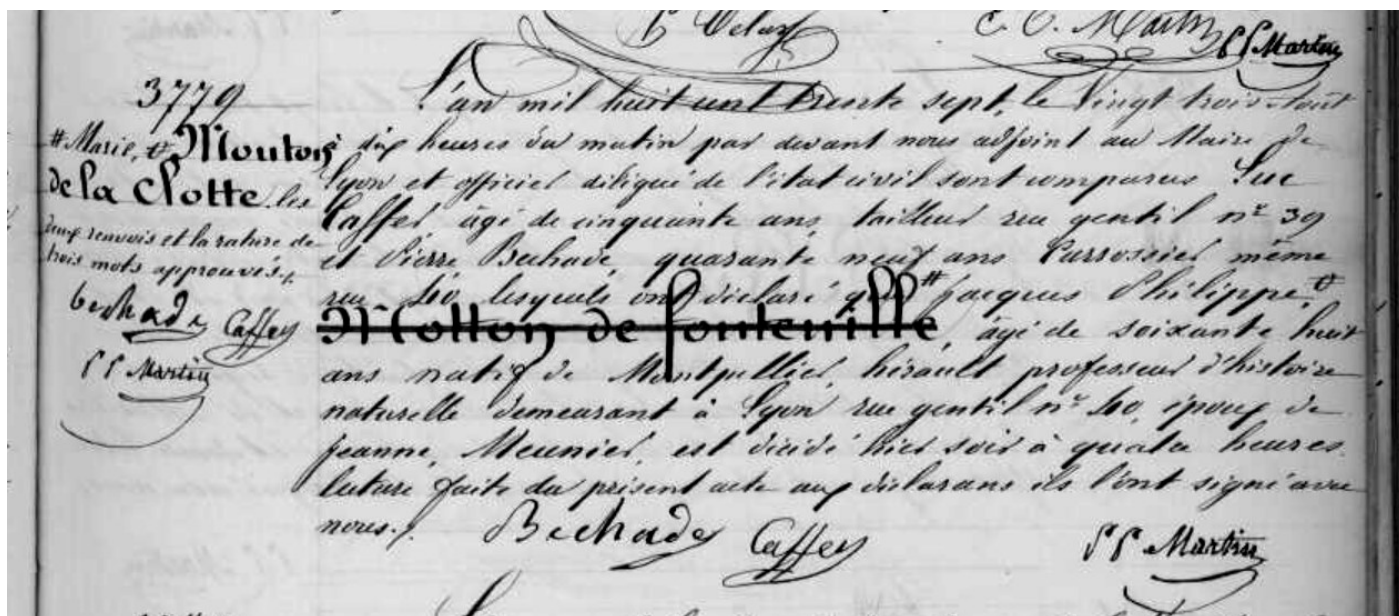 Delar C. C. Martin P P Martin
3779
# Marie, ₶ Mouton
de la Clotte. les
deux renvois et la rature de
trois mots approuvés ./.
bechade Caffey
P P Martin
L'an mil huit cent trente sept, le Vingt trois Août
à dix heures du matin par devant nous adjoint au Maire de
Lyon et officier délégué de l'état civil sont comparus Luc
Caffer âgé de cinquante ans, tailleur rue gentil n.° 39
et Pierre Bechade, quarante neuf ans Carrossier même
rue 40 lesquels ont déclaré que # Jacques Philippe, ₶
Motton de fontenille, âgé de soixante huit
ans natif de Montpellier, hérault professeur d'histoire
naturelle demeurant à Lyon rue gentil n.° 40, époux de
Jeanne Meunier, est décédé hier soir à quatre heures.
lecture faite du présent acte aux déclarans ils l'ont signé avec
nous ./. Bechade Caffey P P Martin